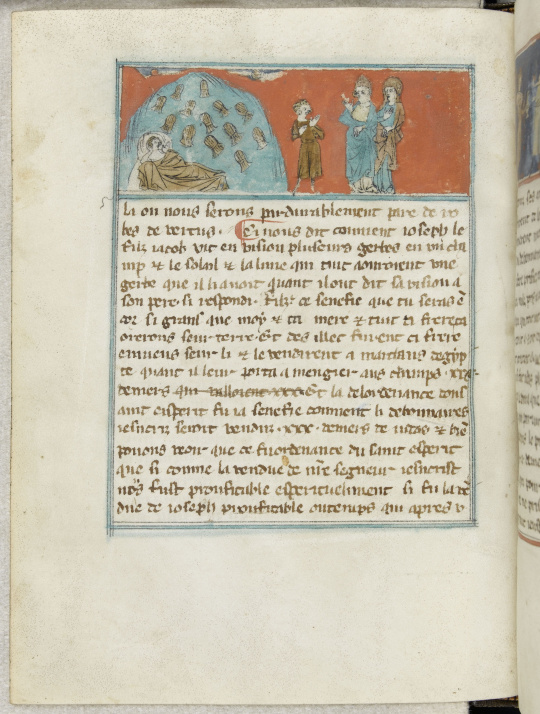 la ou nous serons pardurablement pare de ro
bes de vertus. Ci nous dit comment ioseph le
filz iacob vit en vision pluseurs gerbes en un cha
mp & le soleil & la lune qui tuit aouroient une
gerbe que il li avoit quant il out dit sa vision a
son pere si respondi. Filz ce senefie que tu seras e
cor si grans que moy & ta mere & tuit ti frere ta
oreront seur terre. Et des illec furent ci frere
envieus seur li & le vendirent a marchans degyp
te quant il leur porta a mengier aus champs. xxx.
deniers qui valloient xxx. Et la delordenance dou s
aint esperit fu ia senefie comment li debonnaires
ihesucriz seroit venduz. xxx. deniers de iudas & bie
pouons veoir que ce fu ordenance du saint esperit
que si comme la vendue de nre segneur ihesucrist
nos fust proufitable esperituelment si fu la ve
due de ioseph proufitable ou temps qui apres v